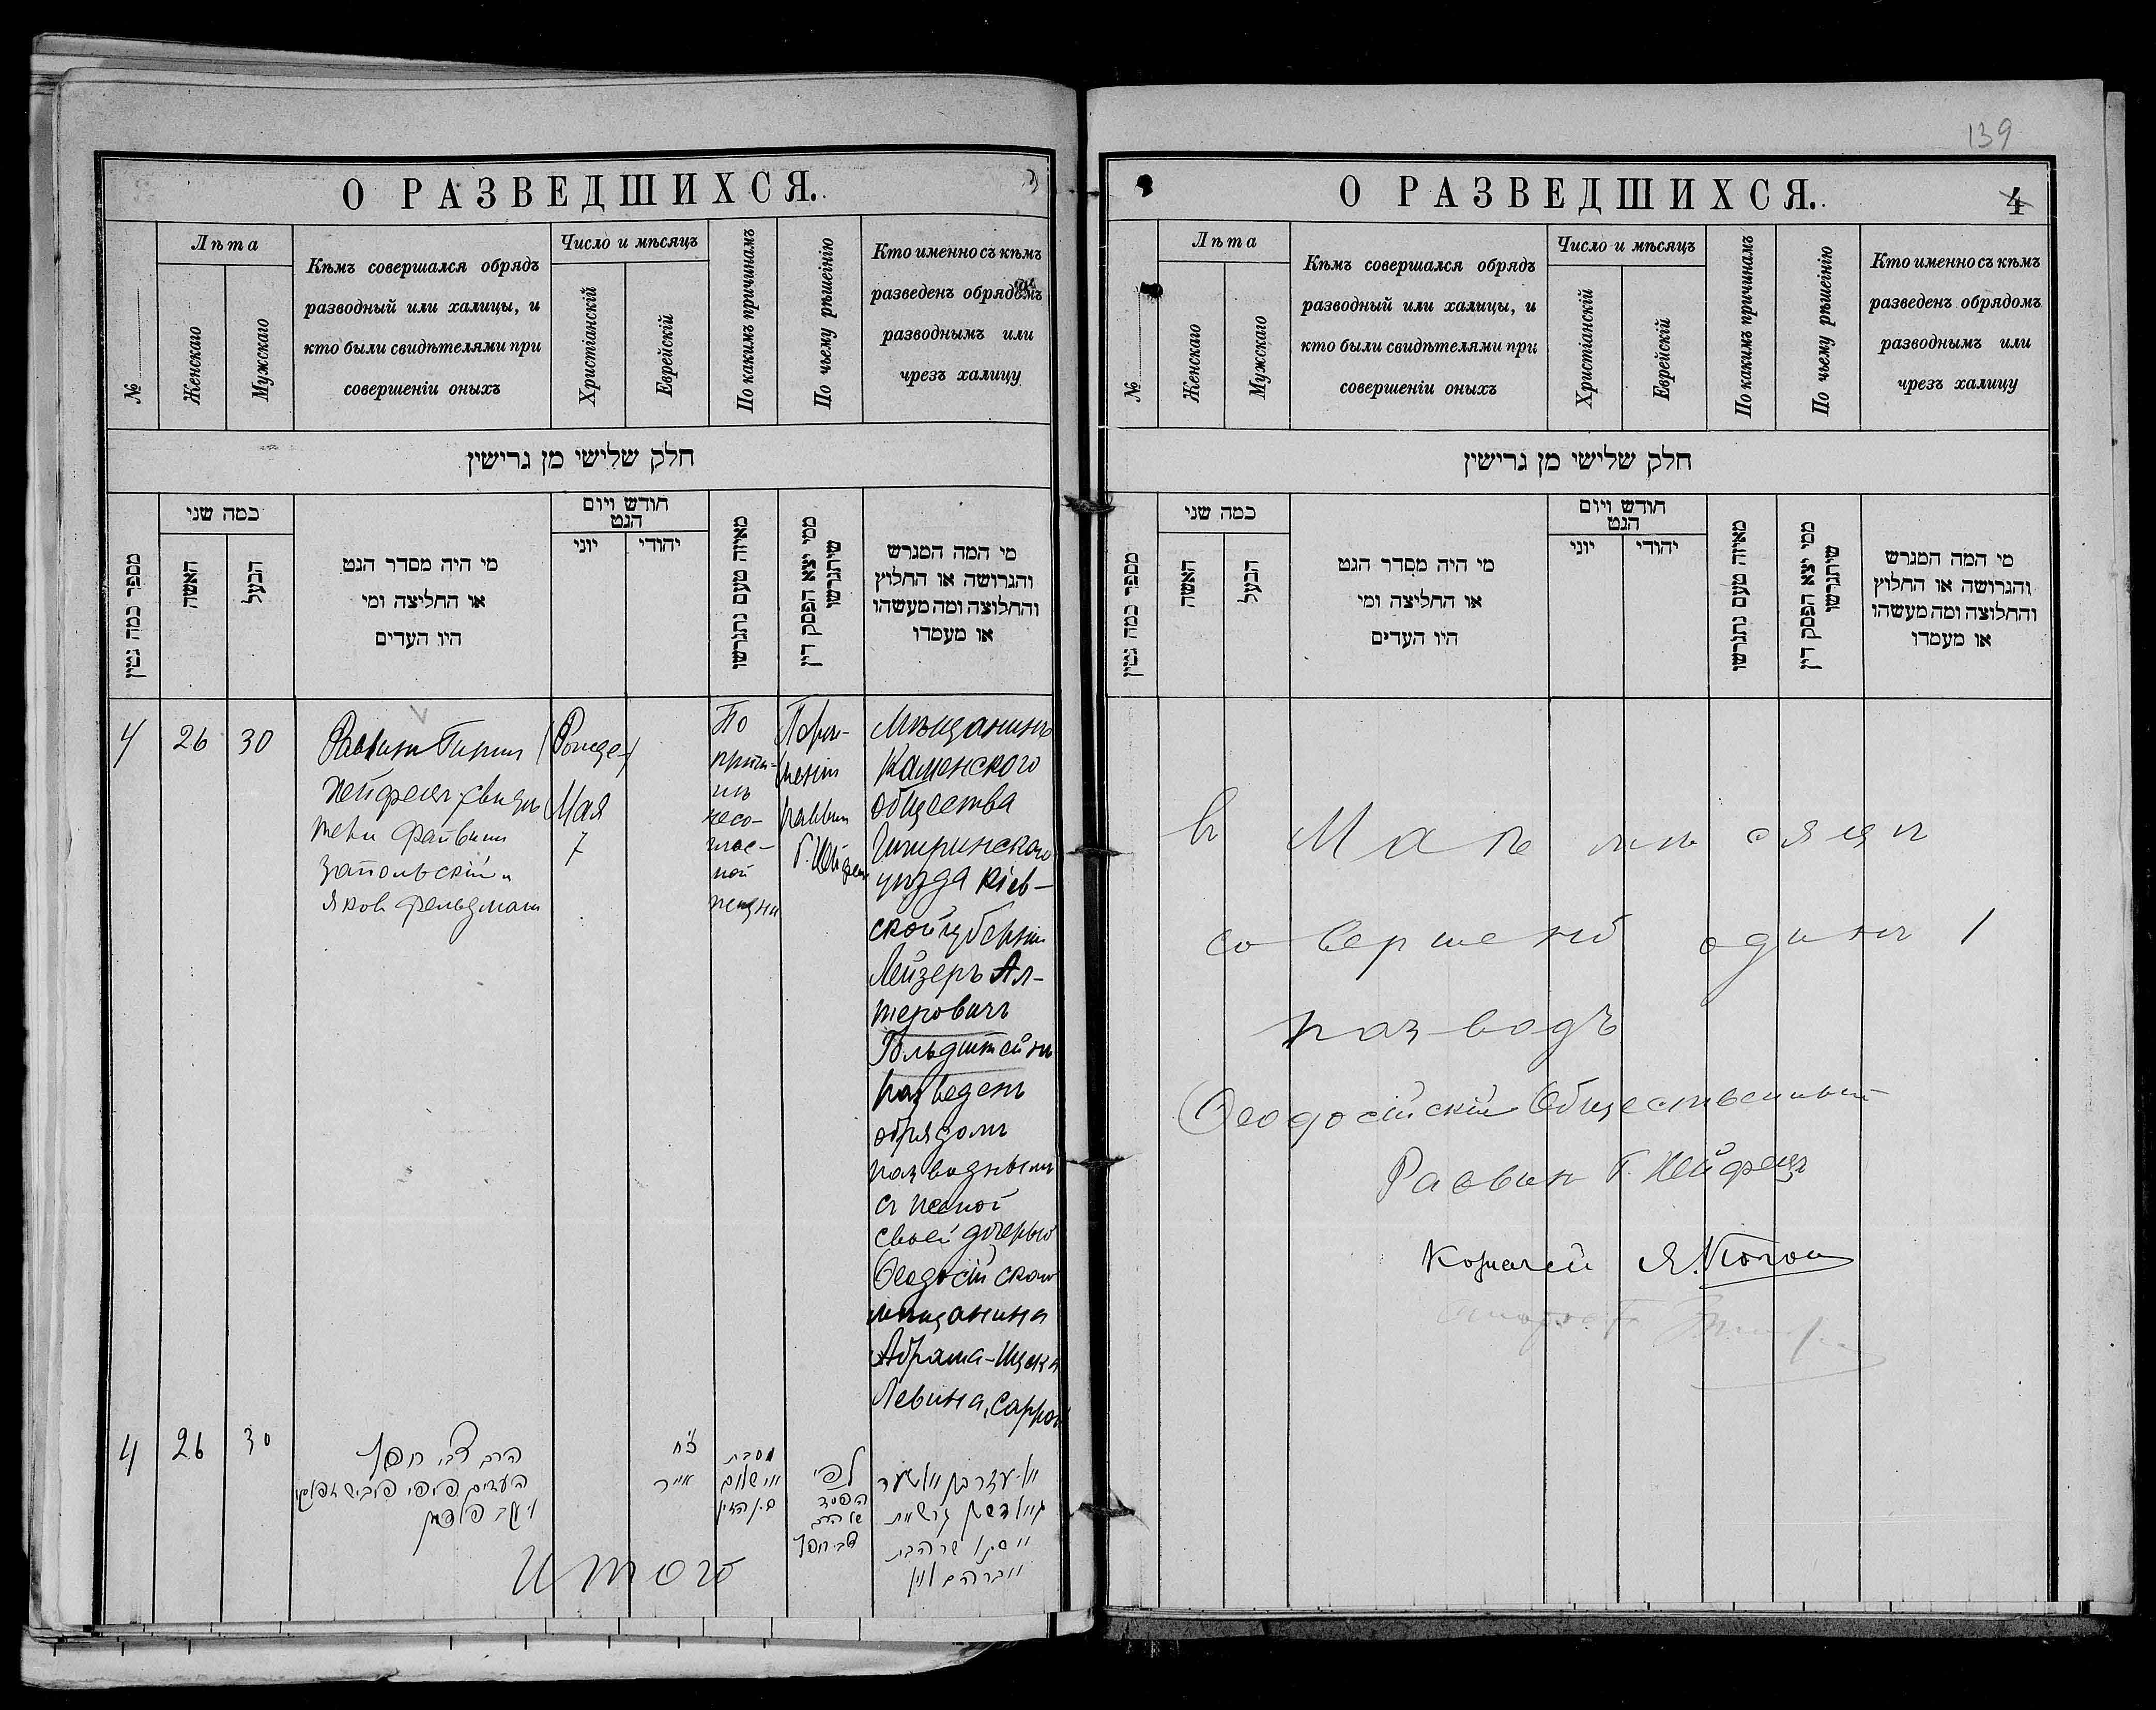 О РАЗВЕДШИХСЯ.
3
№
Лѣта
Женскаго
Мужскаго
Кѣмъ совершался обрядъ
разводный или халицы, и
кто были свидѣтелями при
совершеніи оныхъ
Число и мѣсяцъ
Христіанскій
Еврейскій
По какимъ причинамъ
По чьему рѣшенію
Кто именно съ кѣмъ
разведенъ обрядомъ
разводнымъ или
чрезъ халицу
חלק שלישי מן גרישין
מספר כמה גטין
כמה שני
האשה
הבעל
מי היה מסדר הגט
או החליצה ומי
היו העדים
חודש ויום
הגט
יוני
יהודי
מאיזה טעם נתגרשו
ממי יצא הפסק דין
שיתגרשו
מי המה המגרש
והגרושה או החלוץ
והחלוצה ומה מעשהו
או מעמדו
4
26
30
Раввинъ Гирш
Хейфецъ, свидѣ
тели Файвиш
Запольскій и
Яковъ Фельдманъ
Мая
7
По
причи-
нѣ
несо-
глас-
ной
жизни
По рѣ-
шенію
раввина
Г. Хейфеца
Мѣщанинъ
Каменского
общества
Чигиринского
уѣзда Кіев-
ской губерніи
Лейзеръ Ал-
теровичъ
Гольдштейнъ
разведенъ
обрядомъ
разводнымъ
съ женой
своей дочерью
Ѳеодосійскаго
мѣщанина
Абрама-Ицека
Левина, Саррой
4
26
30
הרב צבי חפץ
העדים
אייר
לפי
Итого
139
О РАЗВЕДШИХСЯ.
4
№
Лѣта
Женскаго
Мужскаго
Кѣмъ совершался обрядъ
разводный или халицы, и
кто были свидѣтелями при
совершеніи оныхъ
Число и мѣсяцъ
Христіанскій
Еврейскій
По какимъ причинамъ
По чьему рѣшенію
Кто именно съ кѣмъ
разведенъ обрядомъ
разводнымъ или
чрезъ халицу
חלק שלישי מן גרישין
מספר כמה גטין
כמה שני
האשה
הבעל
מי היה מסדר הגט
או החליצה ומי
היו העדים
חודש ויום
הגט
יוני
יהודי
מאיזה טעם נתגרשו
ממי יצא הפסק דין
שיתגרשו
מי המה המגרש
והגרושה או החלוץ
והחלוצה ומה מעשהו
או מעמדו
въ Маѣ мѣсяцѣ
совершенъ одинъ 1
разводъ
Ѳеодосійскій Общественный
Раввинъ Г. Хейфецъ
Казначей Я. Коган